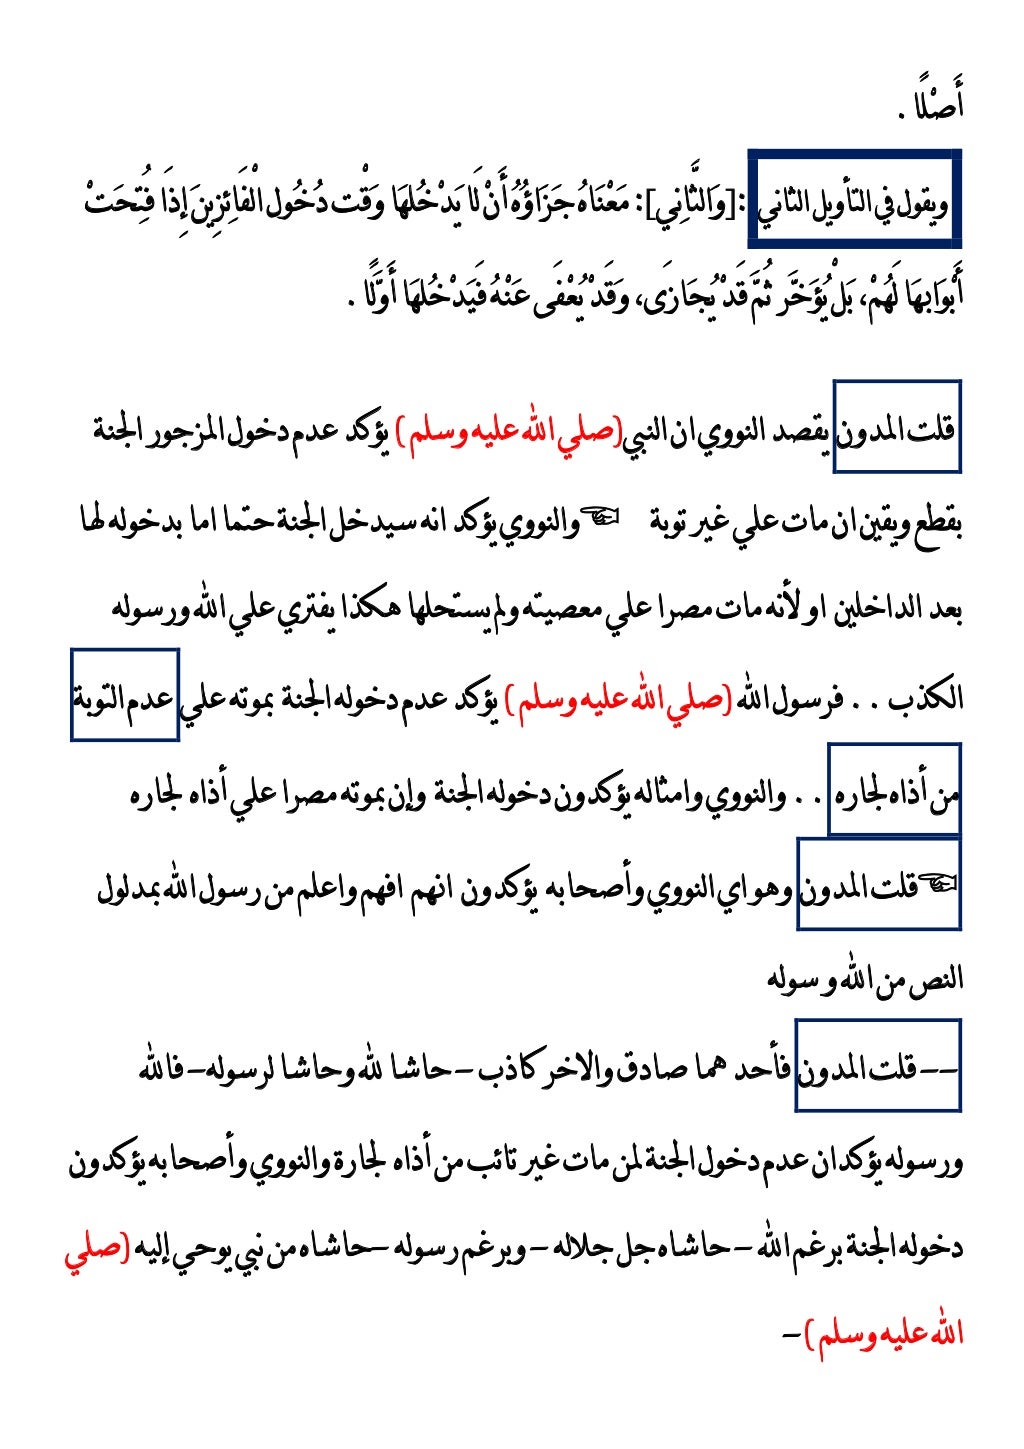 أَصْلًا .
ويقول في التأويل الثاني :[وَالثَّانِي]: مَعْنَاهُ جَزَاؤُهُ أَنْ لَا يَدْخُلهَا وَقْت دُخُول الْفَائِزِينَ إِذَا فُتِحَتْ
أَبْوَابهَا لَهُمْ، بَلْ يُؤَخَّر ثُمَّ قَدْ يُجَازَى، وَقَدْ يُعْفَى عَنْهُ فَيَدْخُلهَا أَوَّلًا .
قلت المدون يقصد النووي ان النبي(صلي الله عليه وسلم ) يؤكد عدم دخول المزجور الجنة
بقطع ويقين ان مات علي غير توبة ☜والنووي يؤكد انه سيدخل الجنة حتما اما بدخوله لها
بعد الداخلين او لأنه مات مصرا علي معصيته ولم يستحلها هكذا يفتري علي الله ورسوله
الكذب . . فرسول الله (صلي الله عليه وسلم ) يؤكد عدم دخوله الجنة بموته علي عدم التوبة
من أذاه لجاره . . والنووي وامثاله يؤكدون دخوله الجنة وإن بموته مصرا علي أذاه لجاره
☜قلت المدون وهو اي النووي وأصحابه يؤكدون انهم افهم واعلم من رسول الله بمدلول
النص من الله و سوله
--قلت المدون فأحد هما صادق والاخر كاذب –حاشا لله وحاشا لرسوله–فالله
ورسوله يؤكدان عدم دخول الجنة لمن مات غير تائب من أذاه لجارة والنووي وأصحابه يؤكدون
دخوله الجنة برغم الله – حاشاه جل جلاله – وبرغم رسوله –حاشاه من نبي يوحي إليه (صلي
الله عليه وسلم )–